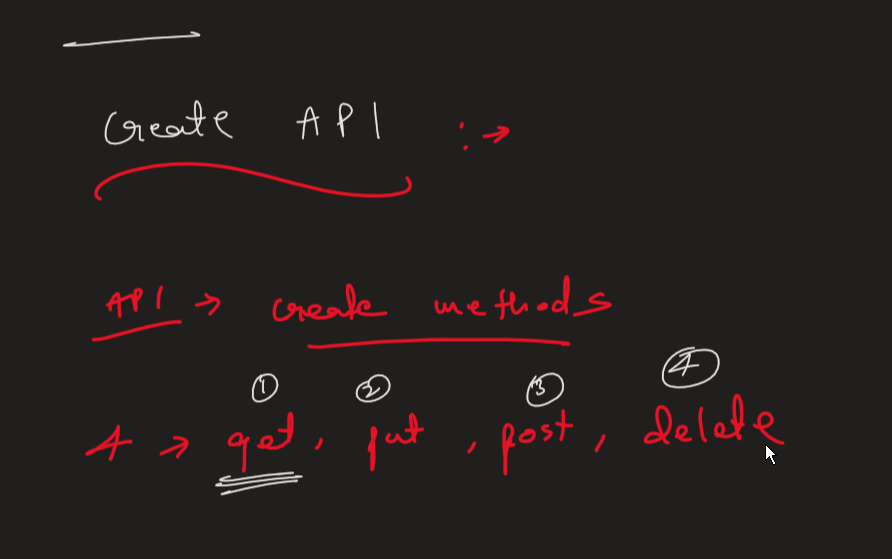 Create API :→
API → create methods
① ② ③ ④
4 → get, put, post, delete